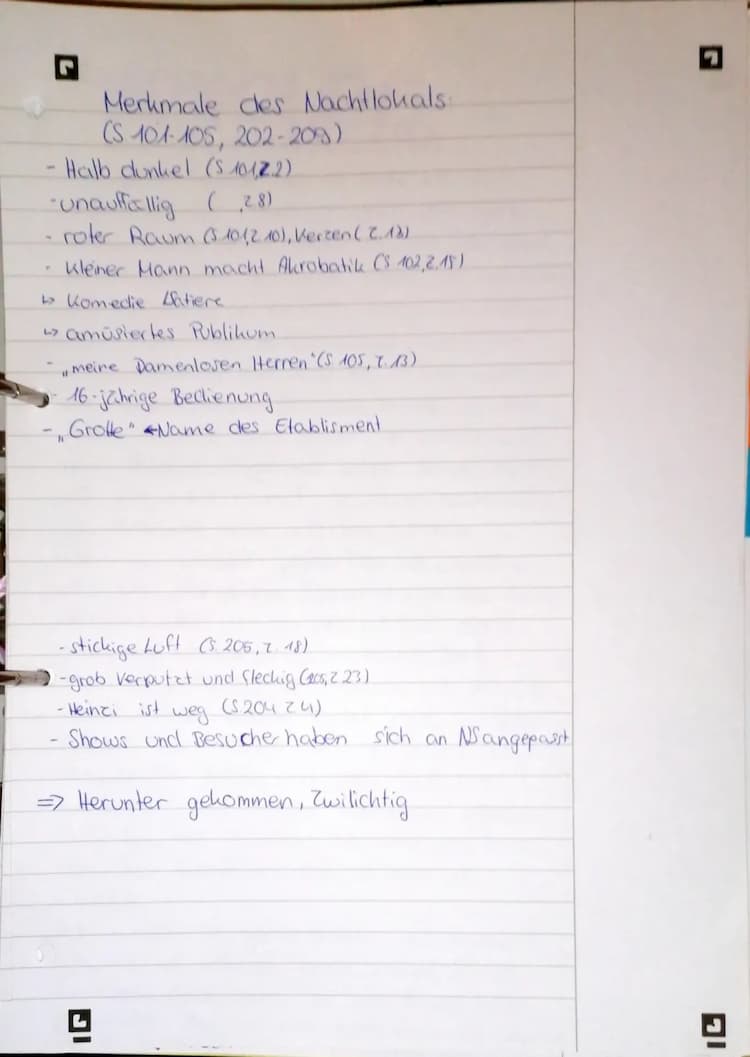 Merkmale des Nachtlokals
(S 101-105, 202-209)
- Halb dunkel (S 101, Z 2)
- unauffällig ( , Z 8)
- roter Raum (S 101, Z 10), Kerzen (Z. 12)
- kleiner Mann macht Akrobatik (S 102, Z. 15)
↳ Komedie Satiere
↳ amüsiertes Publikum
- „meine Damenlosen Herren" (S 105, Z. 13)
- 16-jährige Bedienung
- „Grotte" ← Name des Etablisment
- stickige Luft (S. 205, Z. 18)
- grob verputzt und fleckig (205, Z 23)
- Heinzi ist weg (S 204 Z 4)
- Shows und Besucher haben sich an NS angepasst
=> Herunter gekommen, Zwilichtig